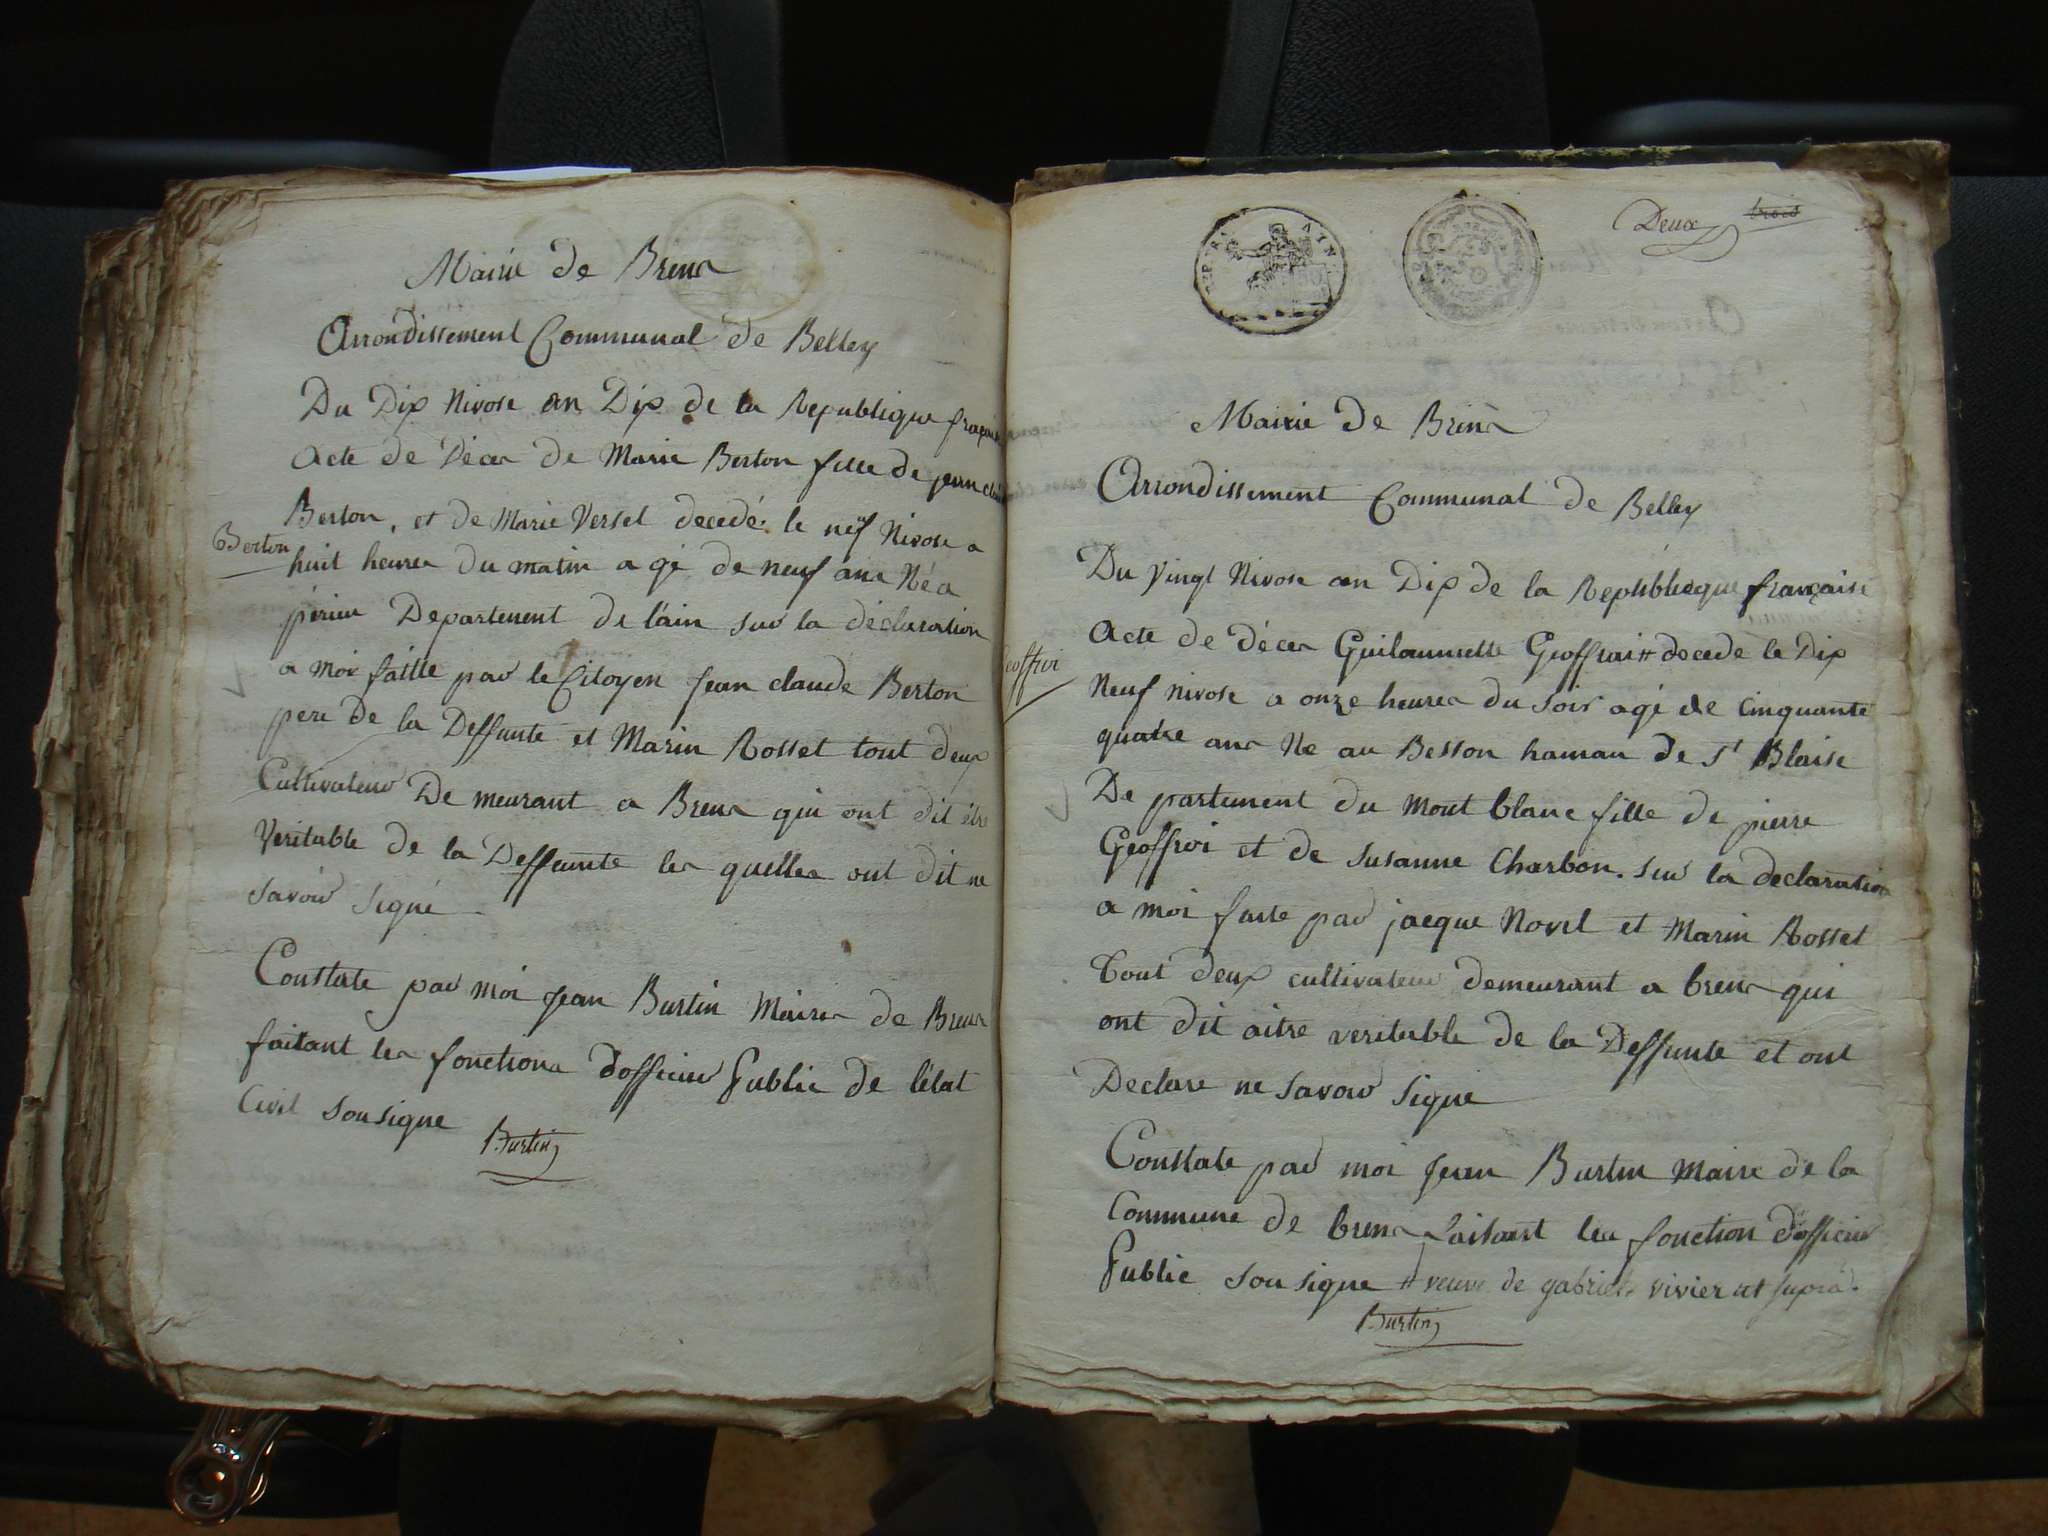 Mairie de Brens
Arrondissement Communal de Belley
Du Dix Nivose an Dix de la Republique française
Acte de Décès de Marie Berton fille de jean claude
Berton, et de Marie Versel decedé le nëf Nivose a
Berton
huit heures du matin a gé de neuf ans Né a
peirieu Departement de l'ain sur la déclaration
a moi faitte par le Citoyen Jean claude Berton
pere de la Deffunte et Marin Rosset tout deux
Cultivateur De meurant a Brens qui ont dit être
Veritable de la Deffeunte les quelles ont dit ne
Savoir Signé
Constate par moi Jean Burtin Maire de Brens
faitant les fonctions d'officier Public de l'état
Civil Sousigne
Burtin
Deux trois
AIN
Mairie de Brens
Arrondissement Communal de Belley
Du Vingt Nivose an Dix de la Republieque française
Acte de Décès Guilaumette Geoffrai # decede le Dix
Geoffroi
Neuf nivose a onze heures du Soir agé de Cinquante
quatre ans Ne au Besson hamau de St Blaise
De partement du Mont blanc fille de pierre
Geoffroi et de Susanne Charbon. Sur la declaration
a moi faite par jacque Novel et Marin Rosset
Tout deux cultivateur demeurant a brens qui
ont dit aitre veritable de la Deffunte et ont
Declare ne Savoir Signe
Constate par moi Jean Burtin Maire de la
Commune de brens faitant les fonction d'officier
Public Sousigne # veuve de gabriel vivier ut supra.
Burtin